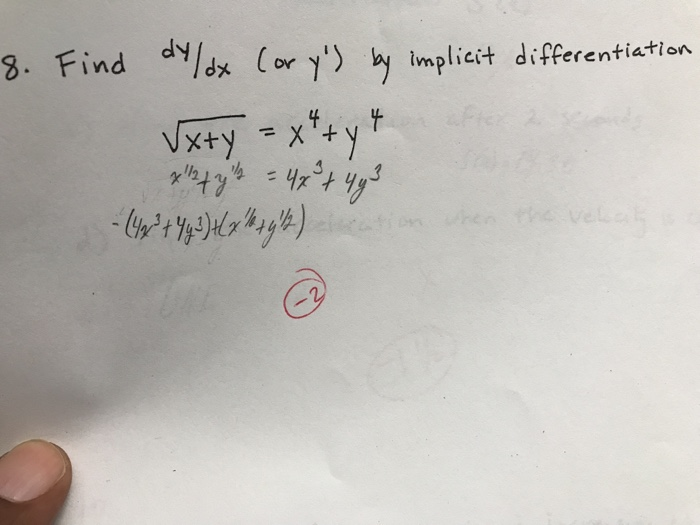 8. Find dy/dx (or y') by implicit differentiation
√x+y = x⁴+y⁴
x^1/2+y^1/2 = 4x³+4y³
-(4x³+4y³)+(x^1/2+y^1/2)
-2